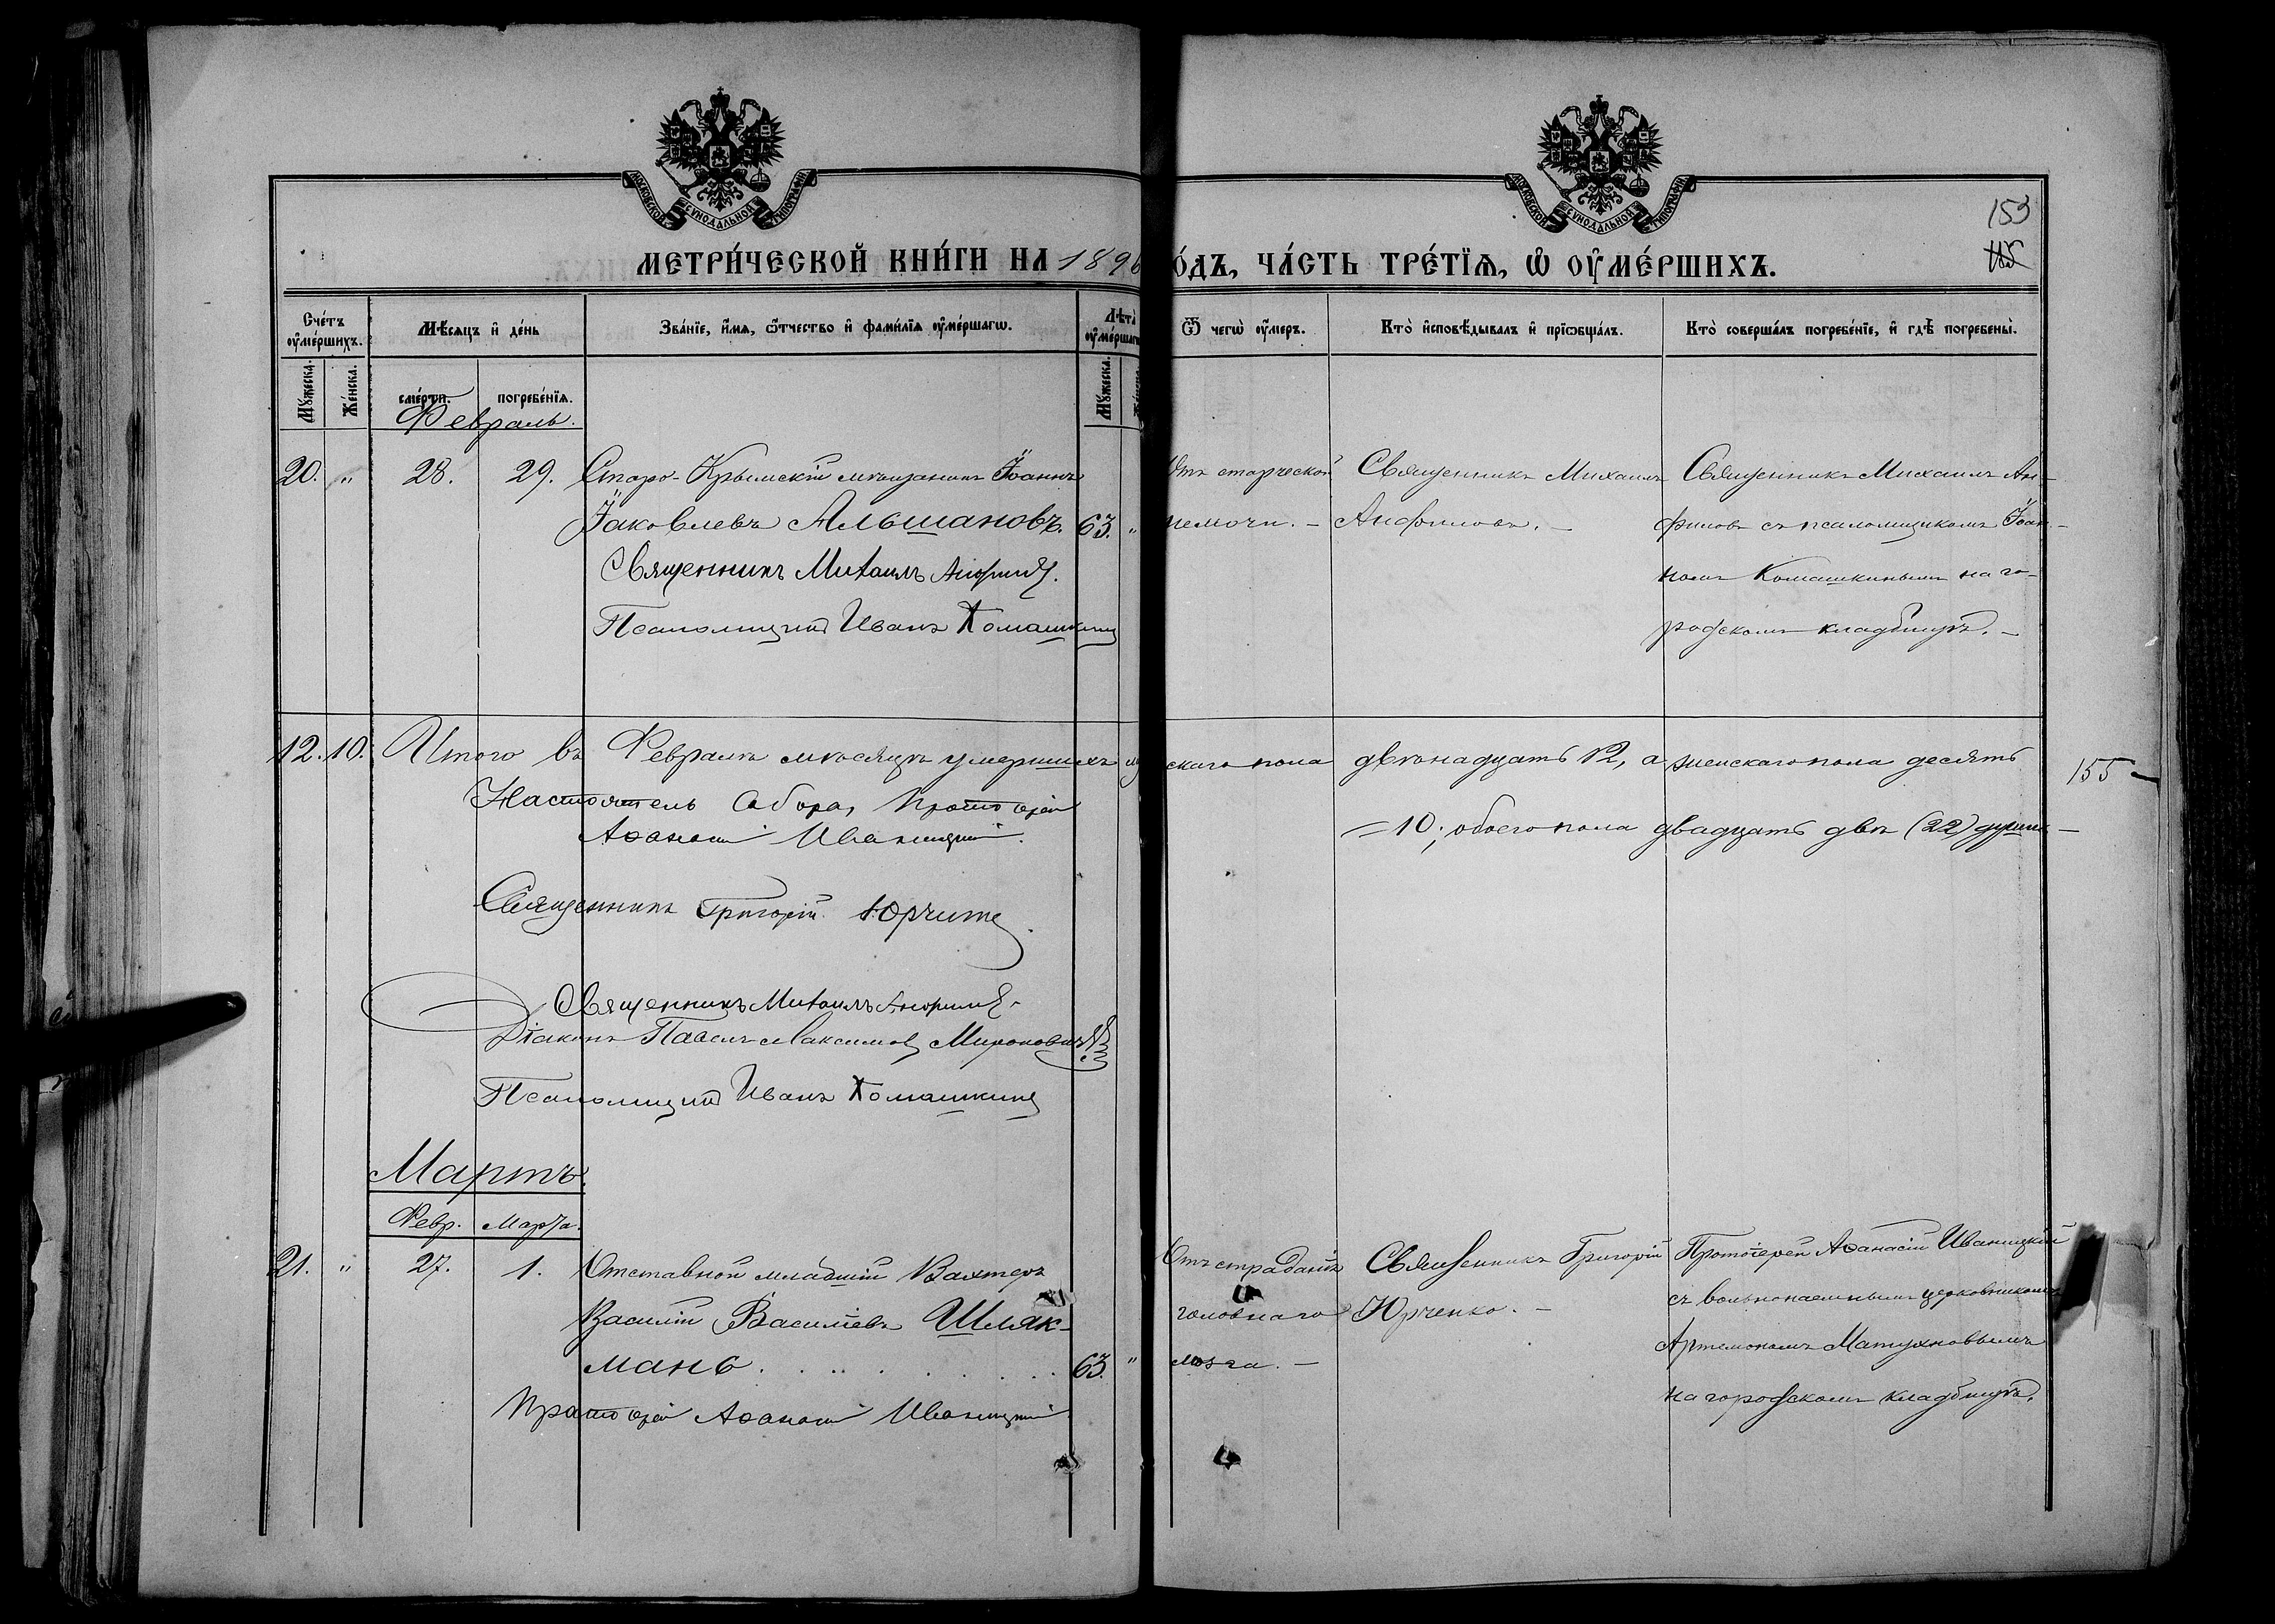 МОСКОВСКОЙ СѴНОДАЛЬНОЙ ТИПОГРАФІИ
МОСКОВСКОЙ СѴНОДАЛЬНОЙ ТИПОГРАФІИ
153
МЕТРИ́ЧЕСКОЙ КНИ́ГИ НА 1896
О́ДЪ, ЧА́СТЬ ТРЕ́ТІѦ, Ѡ҆ ОУ҆МЕ́РШИХЪ.
Сче́тъ оу҆ме́ршихъ.
Мѣ́сяцъ и҆ де́нь
Зва́нїе, и҆́мя, ѻ҆́тчество и҆ фами́лїя оу҆ме́ршагѡ.
Лѣ́та оу҆ме́ршаг
Ѿ чегѡ̀ оу҆́меръ.
Кто̀ и҆сповѣ́дывалъ и҆ прїѡбща́лъ.
Кто̀ соверша́лъ погребе́нїе, и҆ гдѣ̀ погребены̀.
Мꙋ́жеска.
Же́нска.
сме́рти.
погребе́нїя.
Мꙋ́жеска.
Февраль.
20. " 28. 29. Старо-Крымскій мѣщанинъ Іоаннъ
Іаковлевъ Альшановъ. 63. "
Священникъ Михаилъ Анфиловъ.
Псаломщикъ Иванъ Комашкинъ
Отъ старческой
немочи. –
Священникъ Михаилъ
Анфиловъ. –
Священникъ Михаилъ Ан-
филовъ съ псаломщикомъ Іоан-
номъ Комашкинымъ на го-
родскомъ кладбищѣ. –
12. 10. Итого въ Февралѣ мѣсяцѣ умершихъ му
скаго пола двѣнадцать 12, а женскаго пола десять
= 10; обоего пола двадцать двѣ (22) души –
155 –
Настоятель Собора, Протоіерей
Аѳанасій Иваницкій.
Священникъ Григорій Юрченко
Священникъ Михаилъ Анфиловъ
Діаконъ Павелъ Максимов Мироновичъ
Псаломщикъ Иванъ Комашкинъ
Мартъ.
Февр. Марта.
21. " 27. 1. Отставной младшій Вахтеръ
Василій Василіевъ Шляк-
мань . . . . . . . . 63. "
Протоіерей Аѳанасій Иваницкій
Отъ страданія
головнаго
мозга. –
Священникъ Григорій
Юрченко. –
Протоіерей Аѳанасій Иваницкій
съ вольнонаемнымъ церковникомъ
Артемономъ Матухновымъ
на городскомъ кладбищѣ.